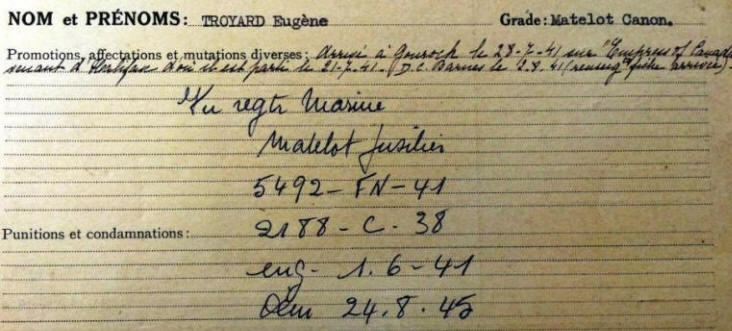 NOM et PRÉNOMS: TROYARD Eugène Grade: Matelot Canon.
Promotions, affectations et mutations diverses: Arrivé à Gourock le 28-7-41 sur "Empress of Canada
venant d'Halifax d'où il est parti le 21-7-41. D.C. Barnes le 2.8.41 (renseig fiche arrivée).
Vu regtr Marine
Matelot fusilier
5492-FN-41
Punitions et condamnations: 2188-C-38
eng- 1.6-41
Dém 24.8.45